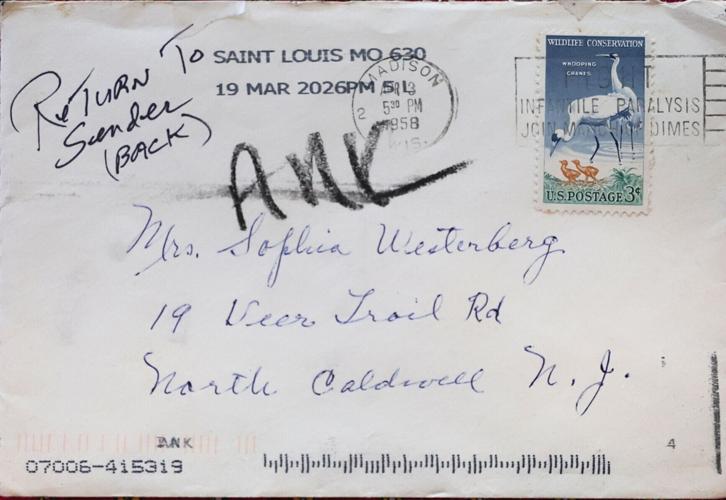 RETURN TO
Sender
(BACK)
SAINT LOUIS MO 630
19 MAR 2026PM 5 L
MADISON
2
APR 3
5 30 PM
1958
WIS.
INFANTILE PARALYSIS
JOIN MARCH OF DIMES
WILDLIFE CONSERVATION
WHOOPING
CRANES
U.S. POSTAGE 3¢
ANK
Mrs. Sophia Westerberg
19 Deer Trail Rd
North Caldwell N. J.
ANK
4
07006-415319